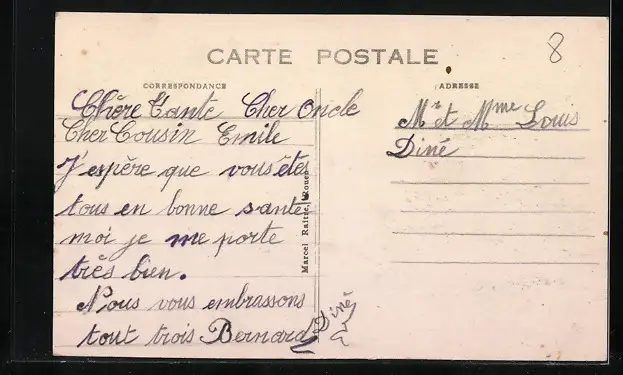 CARTE POSTALE
8
CORRESPONDANCE
ADRESSE
Chère Tante Cher Oncle
Cher Cousin Emile
J'espère que vous êtes
tous en bonne santé
moi je me porte
très bien.
Nous vous embrassons
tout trois Bernard
Diné
Mr et Mme Louis
Diné
Marcel Rouen